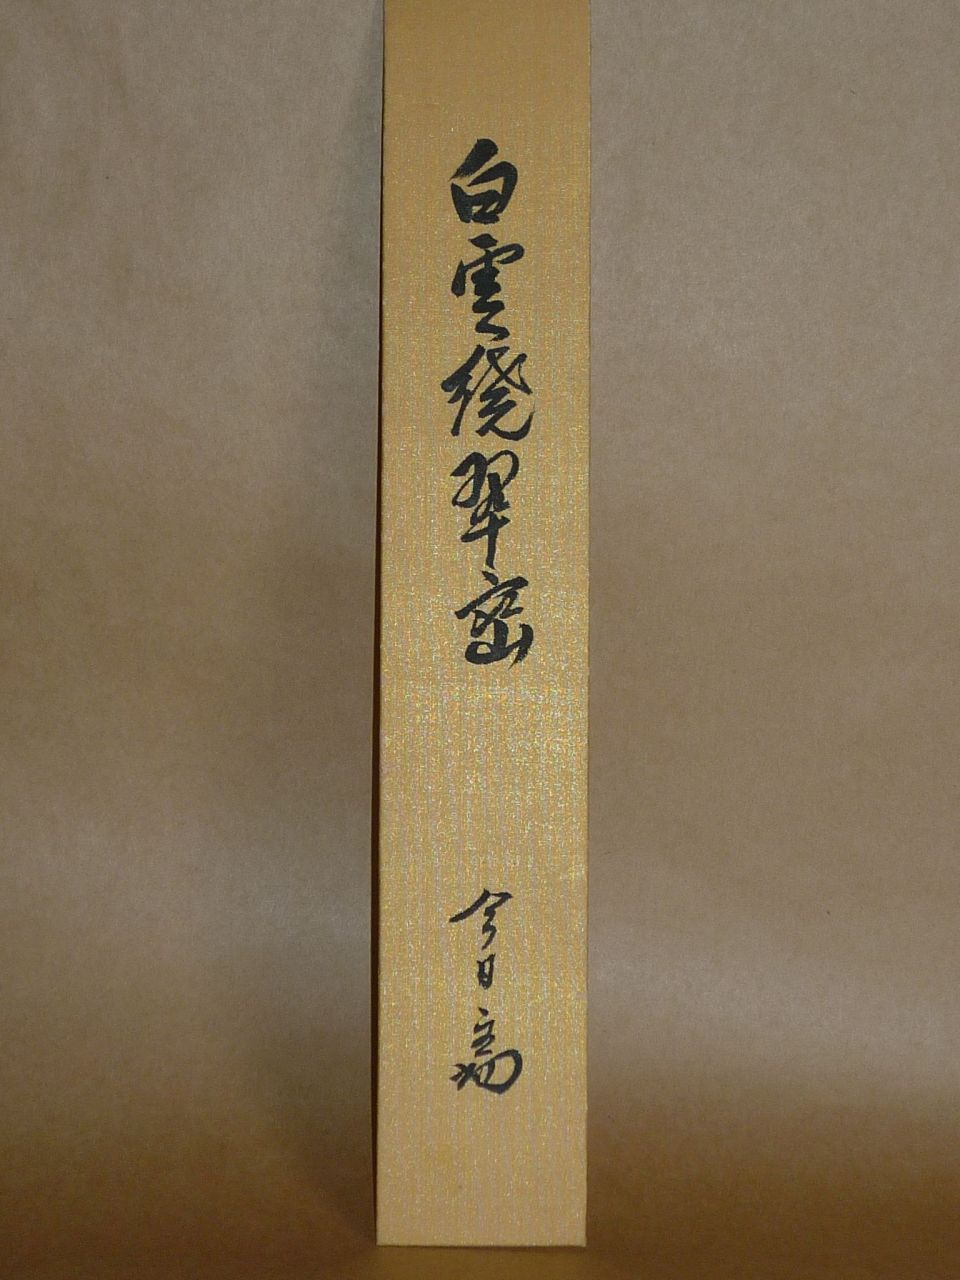 白雲繞翠巒
今日